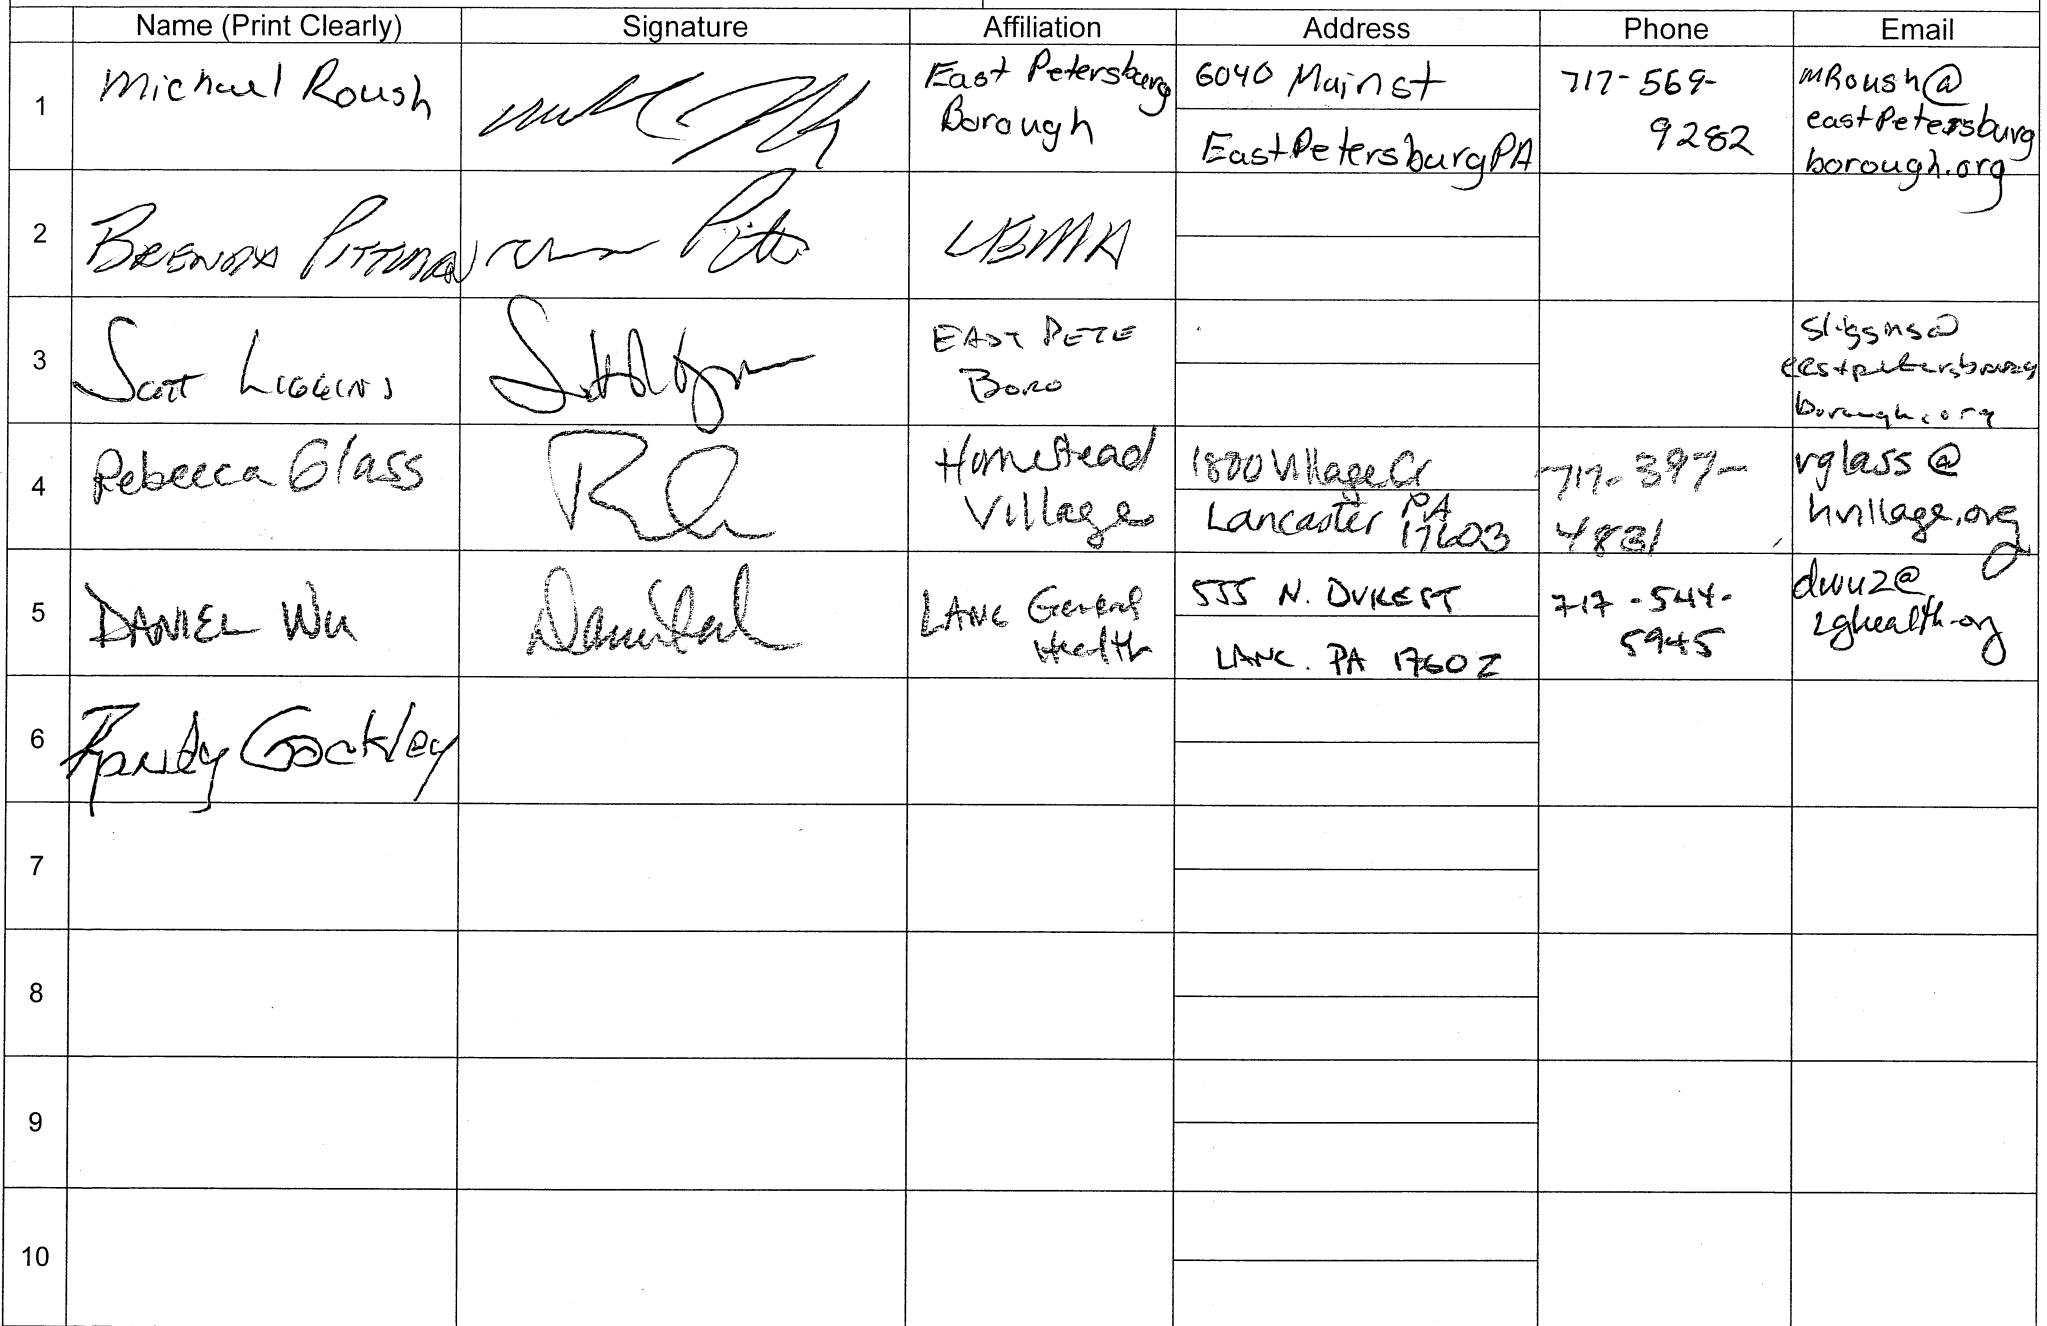 Name (Print Clearly) Signature Affiliation Address Phone Email
1
Michael Roush
East Petersburg
Borough
6040 Main st
East Petersburg PA
717-569-
9282
MRoush@
eastPetersburg
borough.org
2
BRENDA PITTMAN
3
SCOTT LIGGINS
EAST PETE
BORO
sliggins@
eastpetersburg
borough.org
4
Rebecca Glass
Homestead
Village
1800 Village Cr
Lancaster PA
17603
717-397-
4831
rglass@
hvillage.org
5
DANIEL WU
LANC General
Health
555 N. DUKE ST
LANC. PA 17602
717-544-
5945
dwu2@
lghealth.org
6
Randy Gockley
7
8
9
10